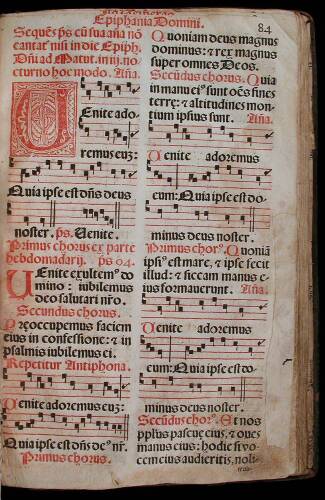 Epiphania Domini.
84
Sequēs ps cū sua añā nō
cantat nisi in die Epiph.
Dñi ad Matut. in iij. no
cturno hoc modo. Aña.
VEnite ado-
remus eū:
Quia ipse est dñs deus
noster. ps. Venite.
Primus chorus ex parte
hebdomadarij. ps 94.
VEnite exultemꝰ do
mino: iubilemus
deo salutari nr̄o.
Secundus chorus.
Preoccupemus faciem
eius in confessione: ⁊ in
psalmis iubilemus ei.
Repetitur Antiphona.
Venite adoremus eum:
Quia ipse est dñs deꝰ nr̄.
Primus chorus.
Quoniam deus magnus
dominus: ⁊ rex magnus
super omnes Deos.
Secūdus chorus. Quia
in manu eiꝰ sunt oēs fines
terrę: ⁊ altitudines mon-
tium ipsius sunt. Aña.
Venite adoremus
eum: Quia ipse est do-
minus deus noster.
Primus chorꝰ. Quoniā
ipsiꝰ est mare, ⁊ ipse fecit
illud: ⁊ siccam manus e-
ius formauerunt. Aña.
Venite adoremus
eum: Quia ipse est do-
minus deus noster.
Secūdꝰ chorꝰ. Et nos
pplus pascuę eius, ⁊ oues
manus eius: hodie si vo-
cem eius audieritis, noli-